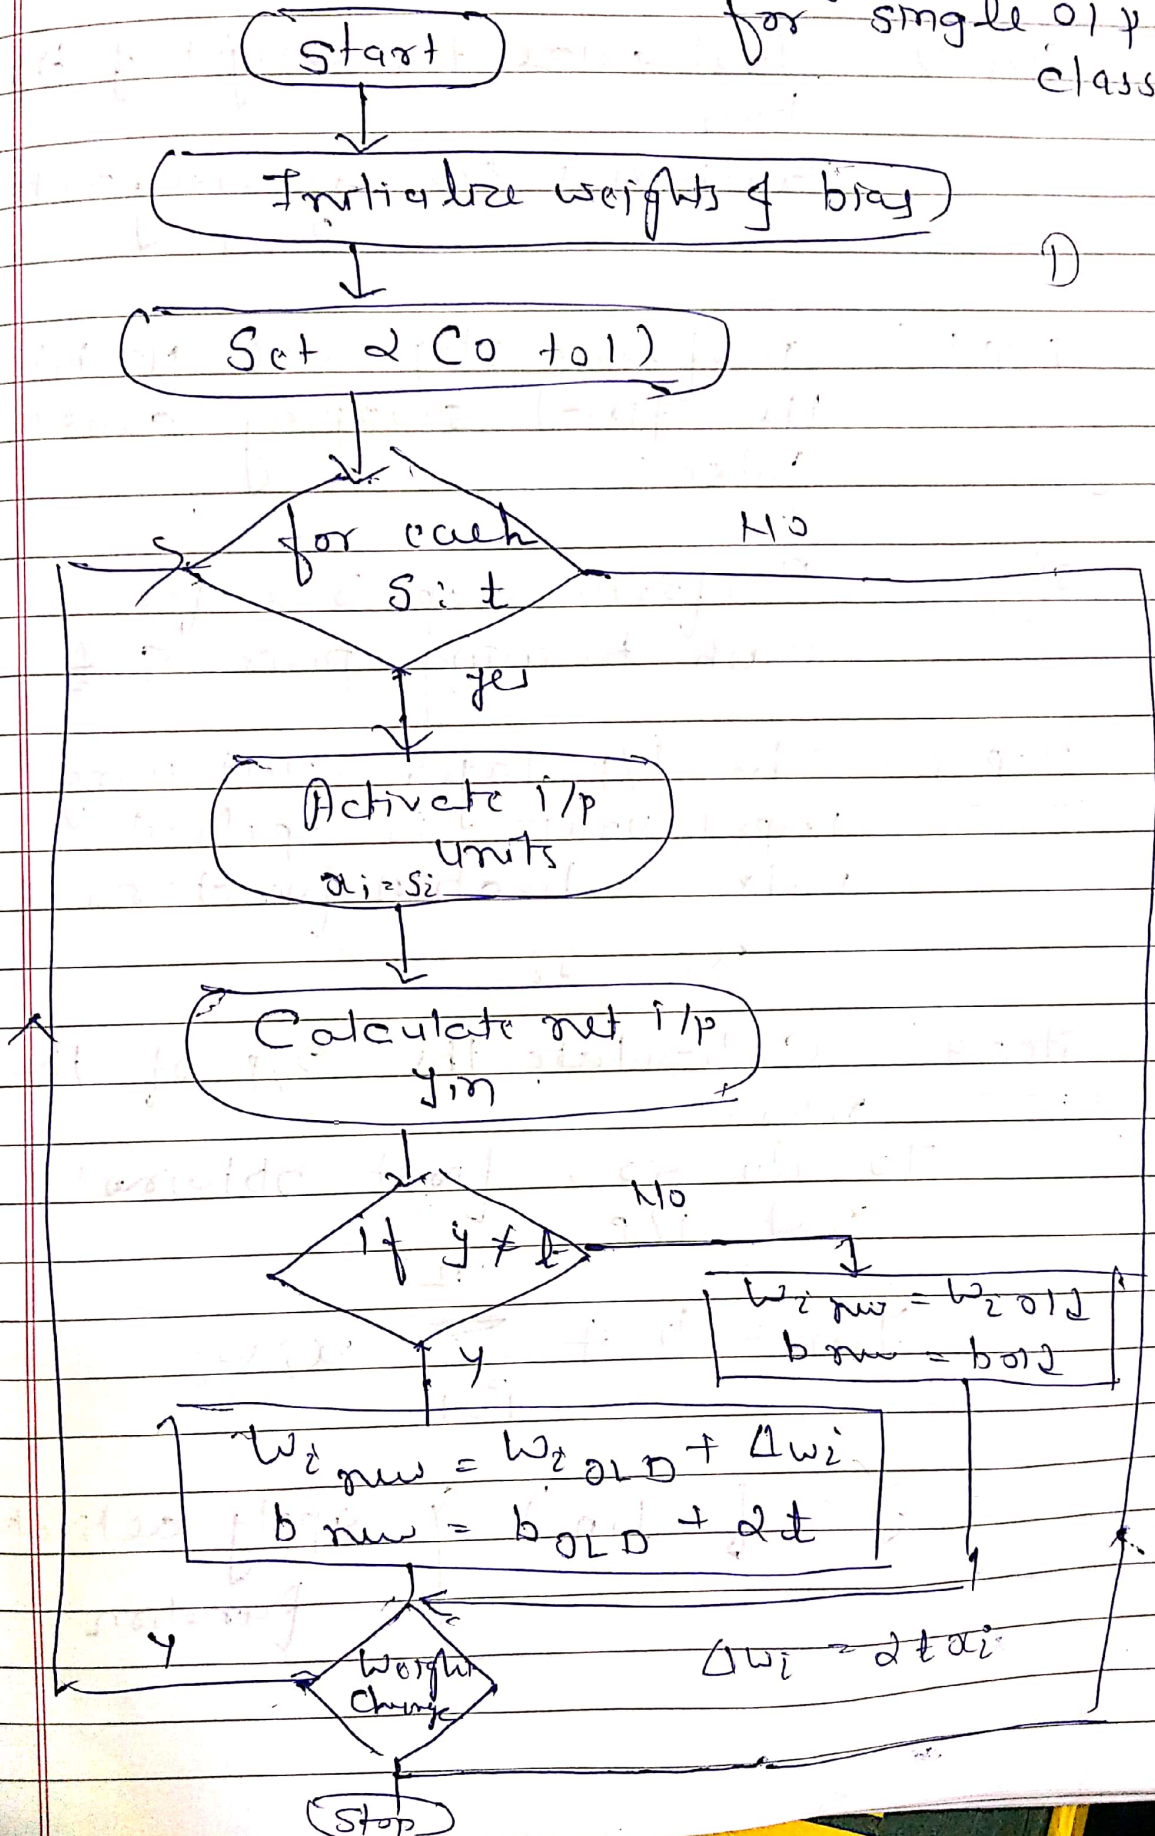 for single o/p
class
Start
Initialize weights & bias
①
Set α (0 to 1)
for each
s : t
NO
yes
Activate i/p
units
xi = si
Calculate net i/p
yin
if y ≠ t
NO
wi new = wi old
b new = bold
Y
wi new = wi OLD + Δwi
b new = bOLD + αt
Y
Weight
Change
Δwi = αtxi
Stop